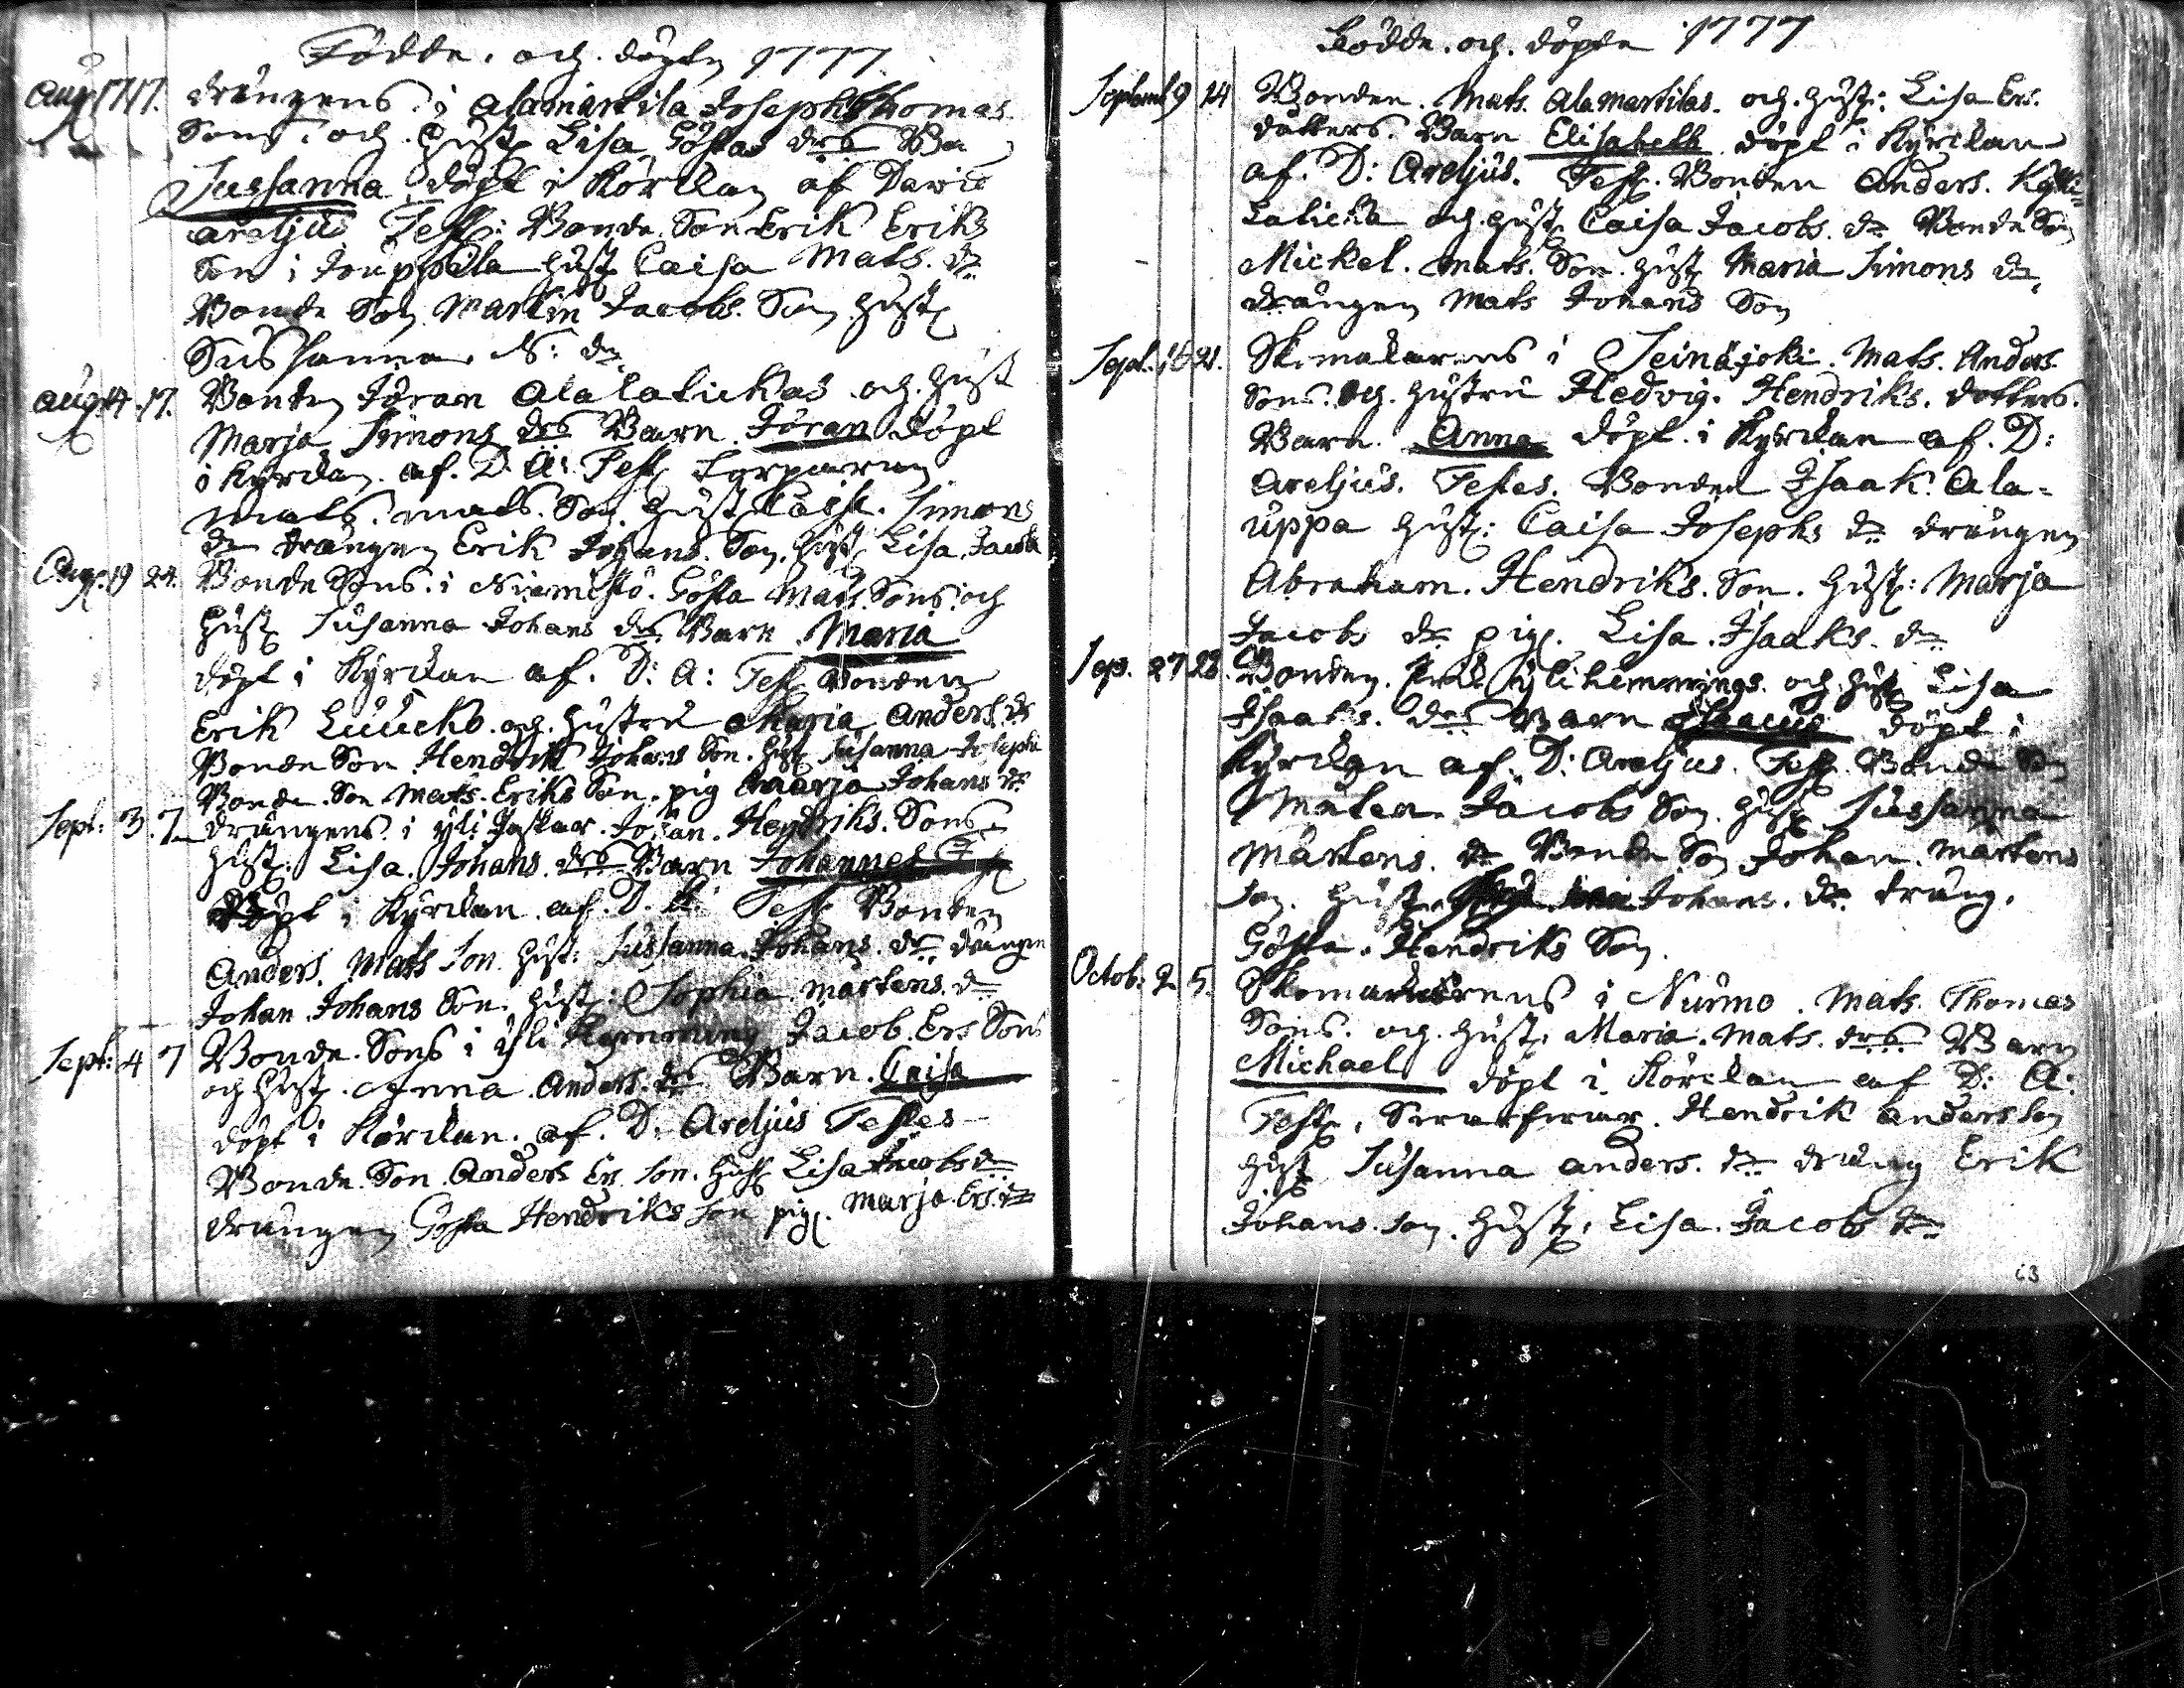 Födde. och. döpte 1777
Aug 17 17. drängens i Alamartila Josephs Thomas
Sons. och. Hust. Lisa Göstas drs Ba
Sussanna döpt i Körckan af David
Areljus Test: Bonde Son Erik Eriks
Son i Jouppila Hust Caisa Mats. dr
Bonde Son Martin Jacobs. Son Hust
Sussanna. N: dr
Aug. 14 17. Bonden Jöran Alalatickas och. Hust
Marja Simons drs Barn Jöran döpt
i Kyrckan. af. D. A: Test Torparen
Mats. Mats. Son. Hust Caisa. Simons
dr drängen Erik Johans. Son. Hust Lisa Jacobs
Aug. 19 24. Bonde Sons. i Niemistö. Gösta Mats. Sons. och
Hust Susanna Johans drs Barn Maria
döpt i Kyrckan af. D: A: Test Bonden
Erik Luucko. och Hustru Maria Anders. dr
Bonde Son Hendrik Johans Son. Hust Susanna Josephs
Bonde. Son Mats. Eriks Son. pig Marja Johans dr
Sept: 3. 7 drängens. i yli Joskar. Johan. Hendriks. Sons.
Hust: Lisa. Johans. drs Barn Johannes
döpt i Kyrckan. af. D. A: Test Bonden
Anders. Mats Son. Hust: Sussanna Johans. dr. drängen
Johan Johans Son. Hust: Sophia. Mårtens. dr
Sept: 4 7 Bonde. Sons i yli Hemming Jacob. Ers Sons
och Hust. Anna Anders. drs Barn. Caisa
döpt i Körckan. af. D. Areljus Testes
Bonde. Son. Anders Er. Son. Hust Lisa Jacobs dr
drängen Gösta Hendriks Son pig. Marja. Ers. dr
Födde. och. döpte 1777
Septemb 9 14 Bonden. Mats. Ala Martilas. och. Hust: Lisa Ers.
dotters. Barn Elisabeth döpt i Kyrckan
af. D: Areljus. Test. Bonden Anders. Kyti=
Laticka och. Hust Caisa Jacobs. dr Bonde Son
Mickel. Mats. Son. Hust Maria Simons dr,
drängen Mats Johans Son
Sept. 16 21. Skomakarens i Seinäjoki. Mats. Anders.
Sons. och. Hustru Hedvig. Hendriks. dotters.
Barn. Anna döpt. i Kyrckan af. D:
Areljus. Testes. Bonden Isaak. Ala=
uppa Hust: Caisa Josephs dr drängen
Abraham. Hendriks. Son. Hust: Marja
Jacobs dr pig. Lisa. Isaaks. dr
Sep. 27 28. Bonden. ylihemmings. och. Hust Lisa
Isaaks. drs Barn Isacus döpt i
Kyrckan af. D: Areljus. Test. Bonde Son
Jacobs Son. Hust Sussanna
Mårtens. dr Bonde Son Johan. Mårtens
Son. Hust Johans. dr. dräng.
Gösta. Hendriks Son.
Octob: 2 5. Skomakarens i Nurmo. Mats. Thomas
Sons. och. Hust. Maria. Mats. drs. Barn
Michael döpt i Körckan af D: A:
Test. Hendrik Anders Son
Hust Susanna Anders. dr dräng Erik
Johans. Son. Hust. Lisa. Jacobs dr
63